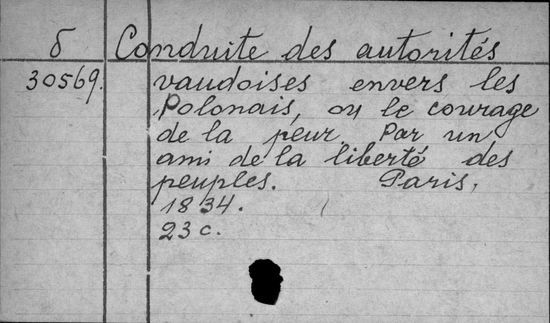 б Conduite des autorités
30569. vaudoises envers les
Polonais, ou le courage
de la peur. Par un
ami de la liberté des
peuples. Paris,
1834.
23 c.